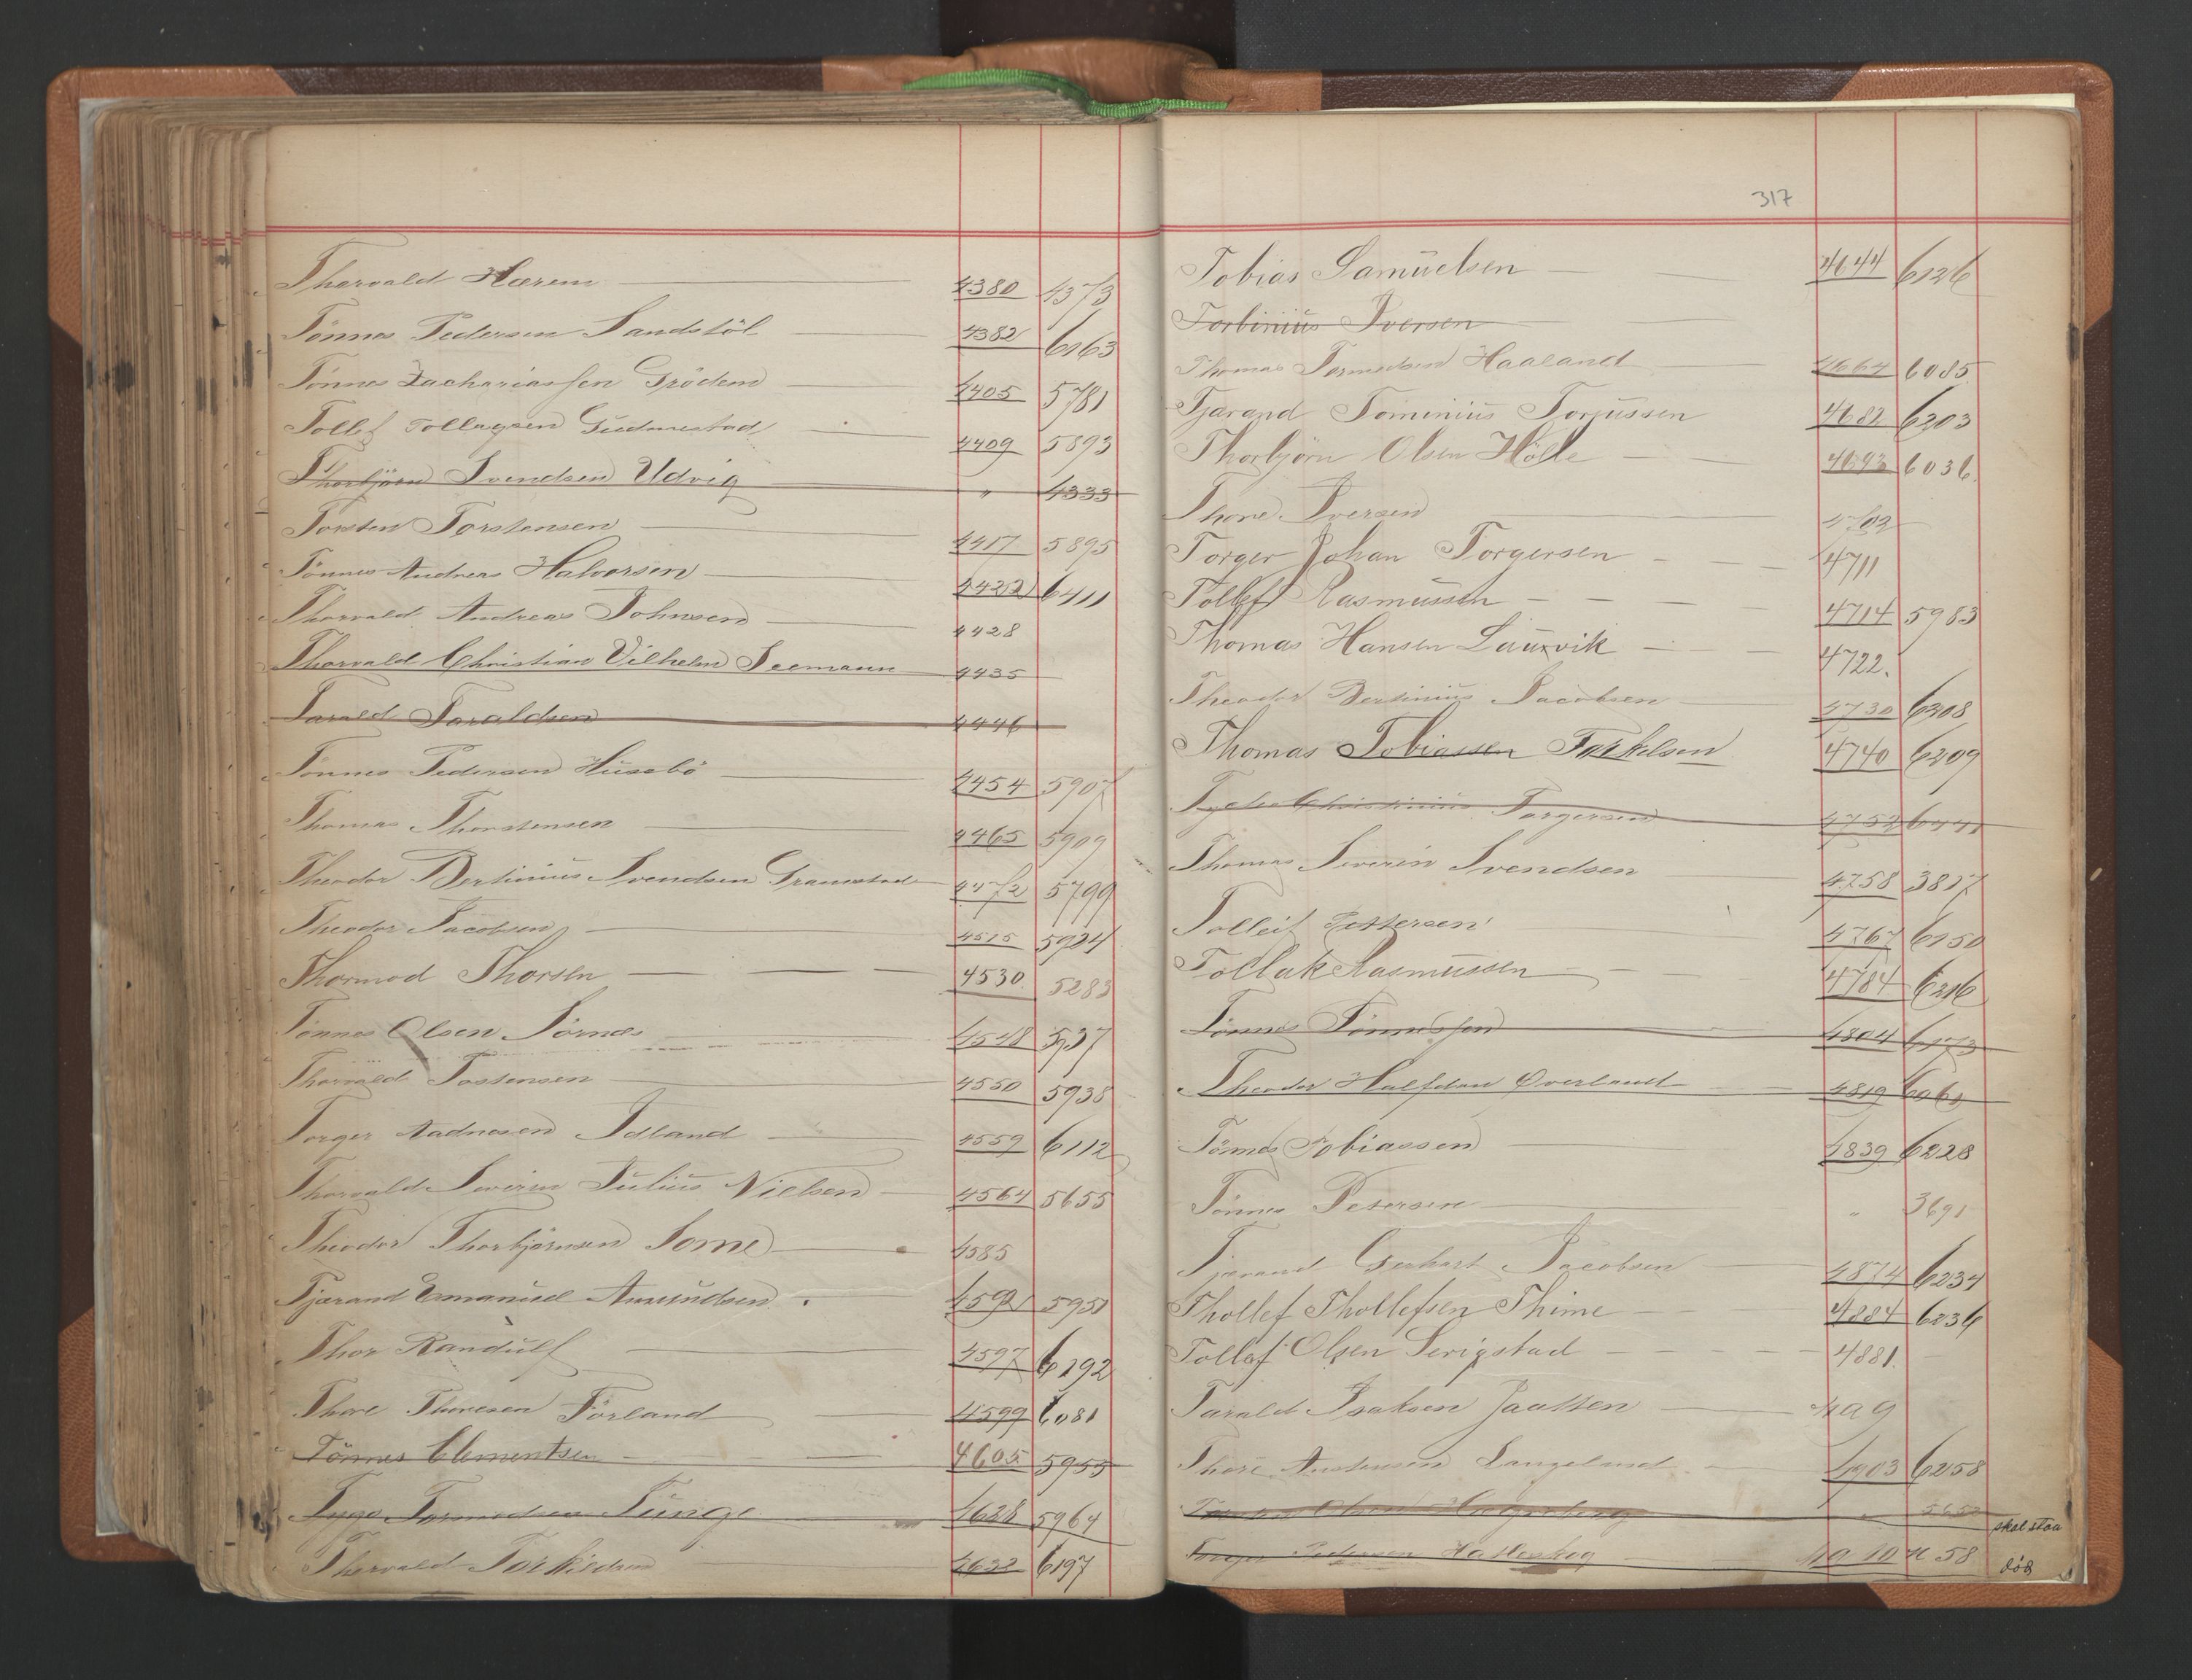 Thorvald Hærem 4380 4373
Tönnes Pedersen Sandstöl 4382 6163
Tönnes Zachariassen Grödem 4405 5781
Tollef Tollagsen Gudmestad 4409 5893
Thorbjörn Svendsen Udvig " 4333
Torsten Torstensen 4417 5895
Tönnes Andreas Halvorsen 4422 6411
Thorvald Andreas Johnsen 4428
Thorvald Christian Vilhelm Seemann 4435
Tarald Taraldsen 4446
Tönnes Pedersen Husebö 4454 5907
Thomas Thorstensen 4465 5909
Theodor Bertinius Svendsen Gramstad 4472 5799
Theodor Jacobsen 4515 5924
Thormod Thorsen 4530 5283
Tönnes Olsen Sörnes 4548 5937
Thorvald Tostensen 4550 5938
Torger Aadnesen Idland 4559 6112
Thorvald Severin Julius Nielsen 4564 5655
Theodor Thorbjörnsen Some 4585
Tjærand Emanuel Amundsen 4592 5951
Thor Randulf 4597 6192
Thore Thoresen Förland 4599 6081
Tönnes Clementsen 4605 5955
Tygo Tormodsen Tunge 4628 5964
Thorvald Torkildsen 4632 6197
317
Tobias Samuelsen 4644 6126
Torbinius Iversen
Thomas Tormodsen Haaland 4664 6085
Tjærand Tominius Torjussen 4682 6203
Thorbjörn Olsen Hölle 4693 6036.
Thore Iversen 4702
Torger Johan Torgersen 4711
Tollef Rasmussen 4714 5983
Thomas Hansen Laurvik 4722.
Theodor Bertinius Jacobsen 4730 6208
Thomas Tobiassen Torkelsen 4740 6209
Christinius Torgersen 4752 6441
Thomas Severin Svendsen 4758 3817
Tolleif Pettersen 4767 6150
Tollak Rasmussen 4784 6216
Tönnes Tönnessen 4804 6173
Theodor Halfdan Overland 4819 6061
Tönnes Tobiassen 4839 6228
Tönnes Petersen " 3691
Tjærand Gerhart Jacobsen 4874 6234
Thollef Thollefsen Thime 4884 6236
Tollef Olsen Serigstad 4881.
Tarald Isaksen Jaatten
Thore Austensen Langeland 4903 6258
Olsen " 5652
skal staa
Torger Pedersen Hatleskog 58